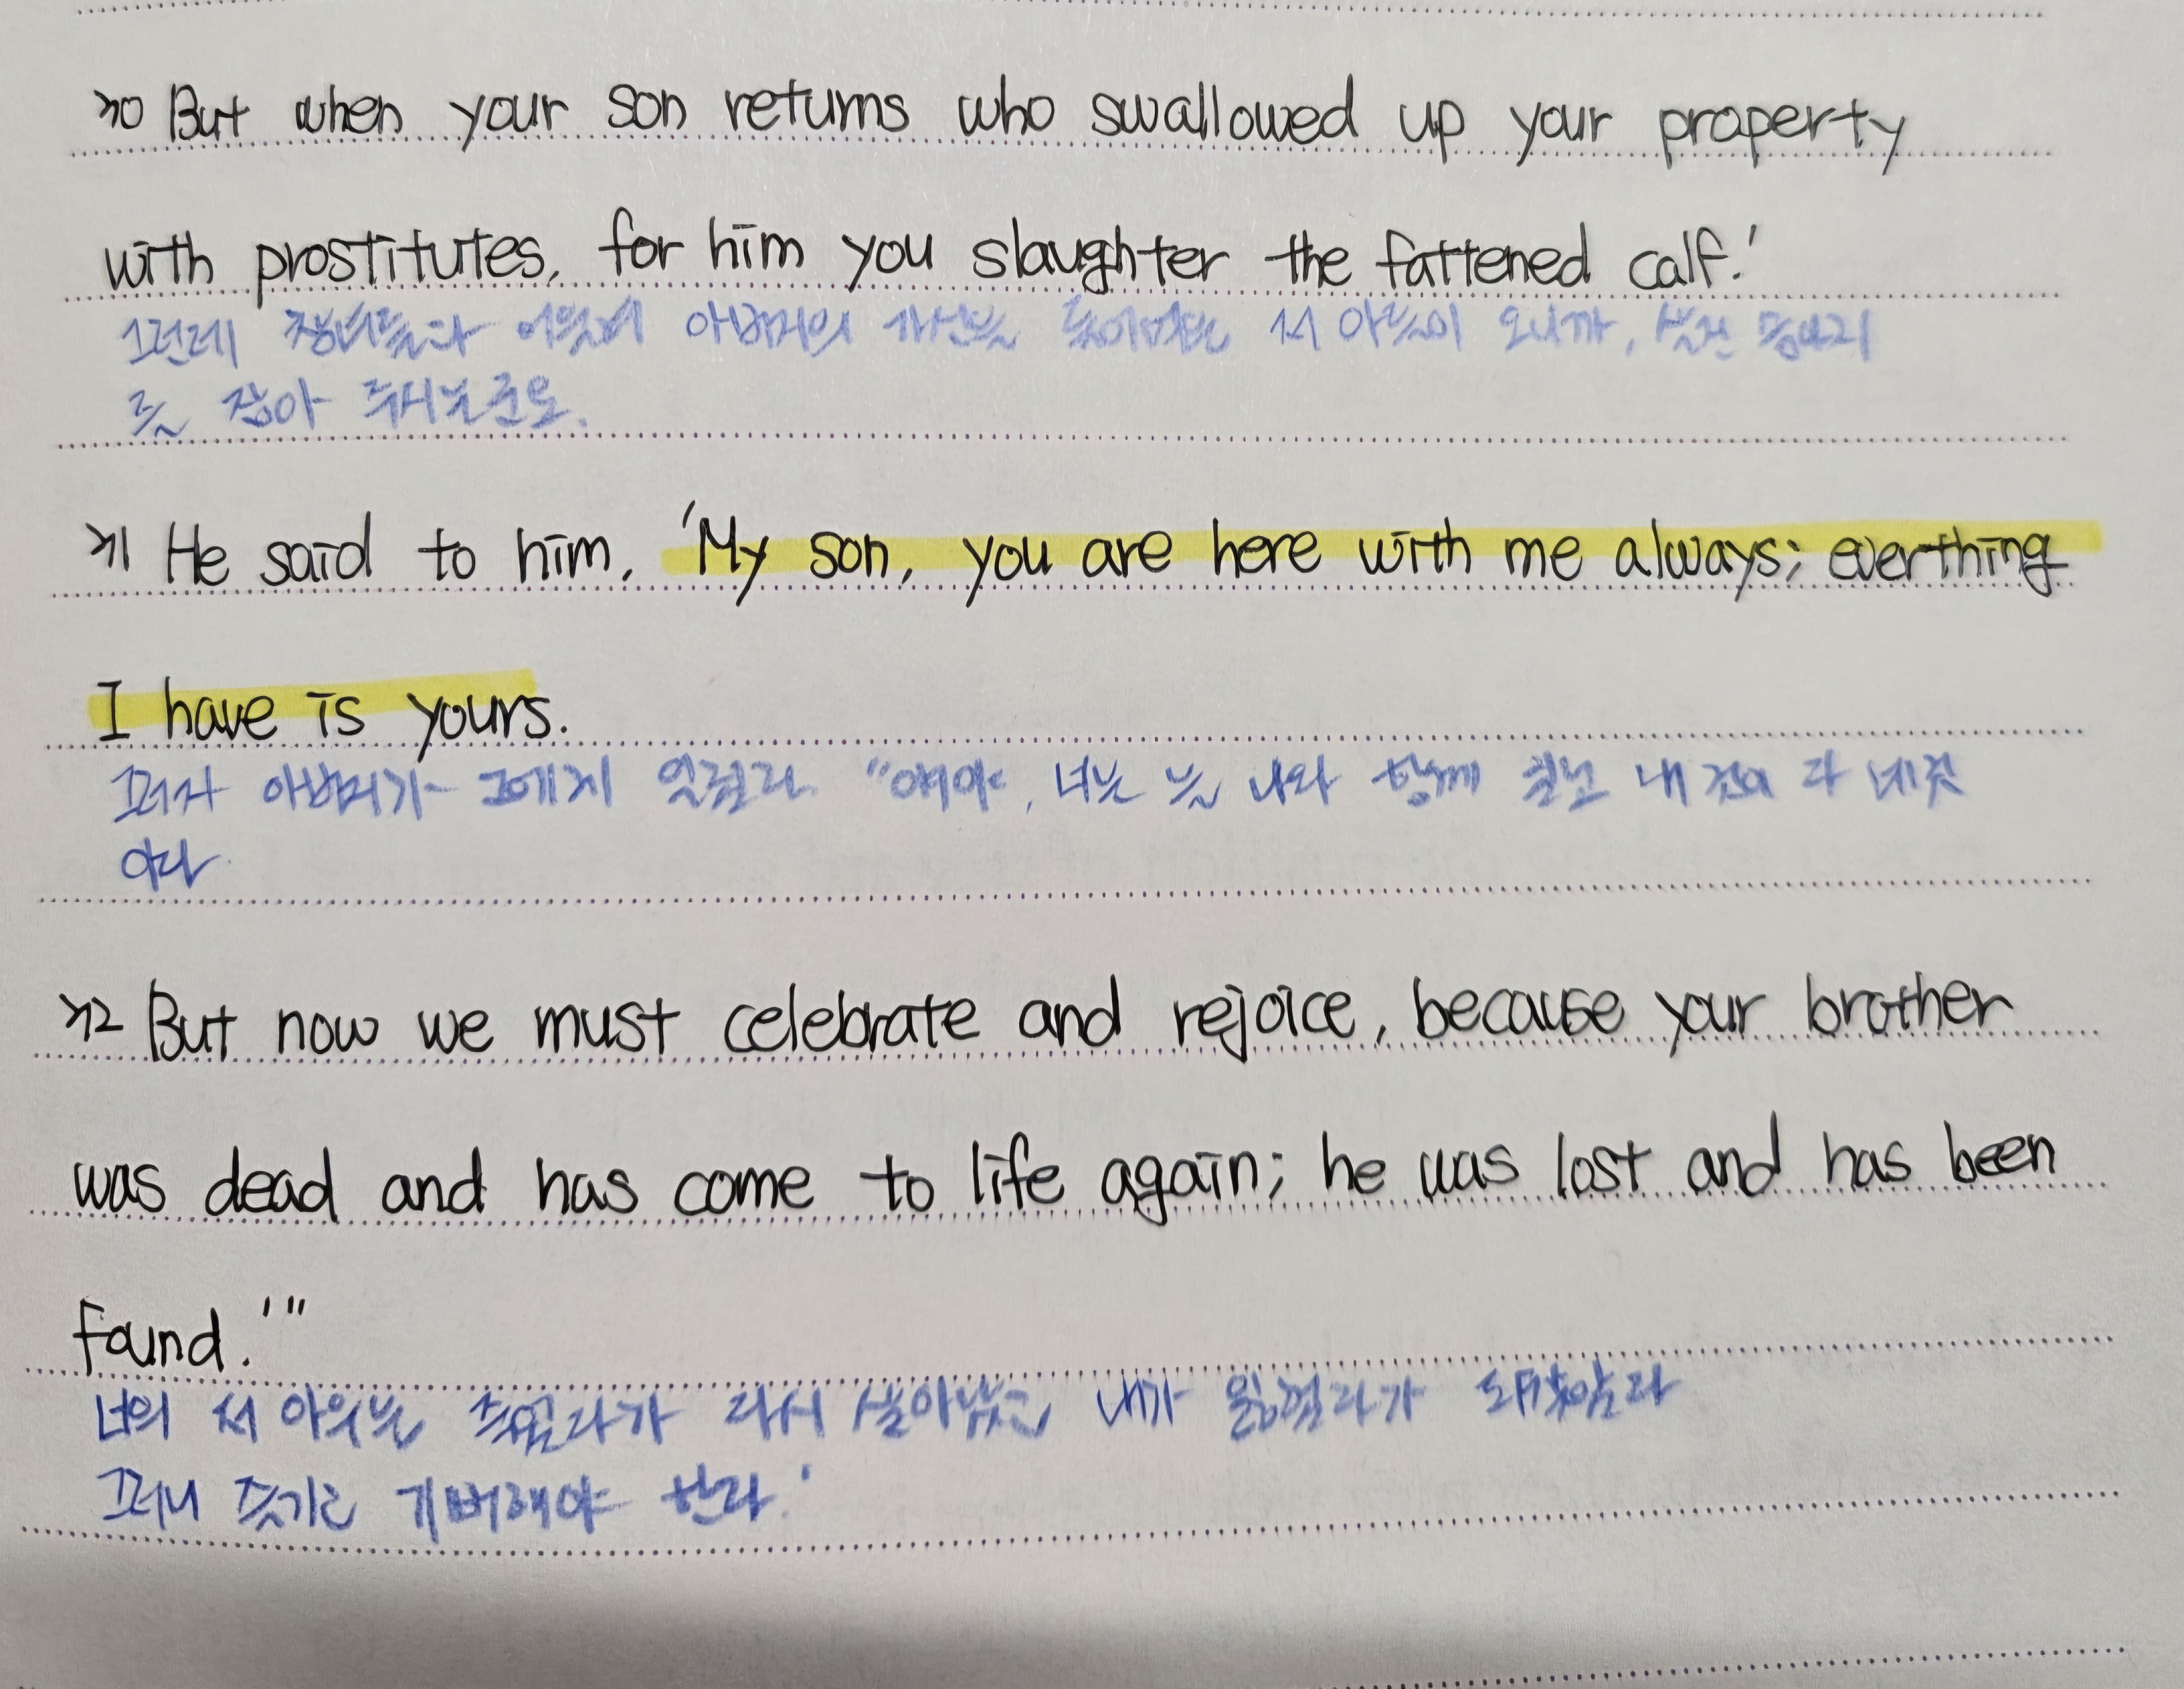 30 But when your son returns who swallowed up your property
with prostitutes, for him you slaughter the fattened calf.'
그런데 창녀들과 어울려 아버지의 가산을 들어먹은 저 아들이 오니까, 살진 송아지
를 잡아 주시는군요.
31 He said to him, 'My son, you are here with me always; everthing
I have is yours.
그러자 아버지가 그에게 일렀다. "얘야, 너는 늘 나와 함께 있고 내 것이 다 네것
이다.
32 But now we must celebrate and rejoice, because your brother
was dead and has come to life again; he was lost and has been
found.'"
너의 저 아우는 죽었다가 다시 살아났고 내가 잃었다가 도로찾았다
그러니 즐기고 기뻐해야 한다.'